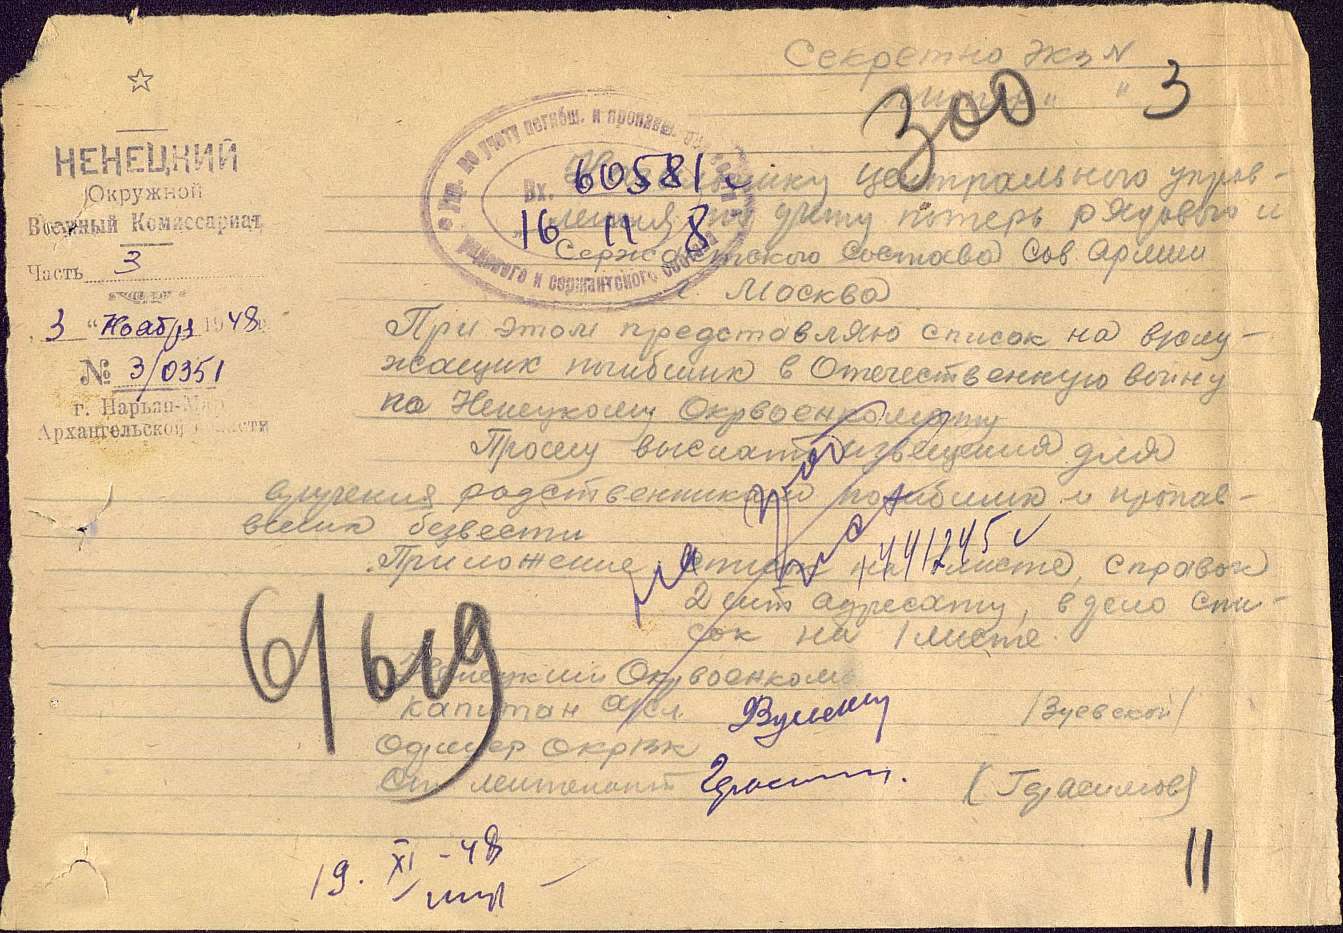 Секретно Экз N
300
3
НЕНЕЦКИЙ
Окружной
Военный Комиссариат
Часть 3
3 " Ноября 1948 г.
№ 3/0351
г. Нарьян-Мар
Архангельской области
Упр. по учету погибш. и пропавш.
Вх. 60581
16 11 8
рядового и сержантского состава
Начальнику Центрального управ-
ления по учету потерь рядового и
Сержантского состава Сов Армии
г. Москва
При этом представляю список на вслу-
жащих погибших в Отечественную войну
по Ненецкому Окрвоенкомату
Прошу выслать извещения для
вручения родственникам погибших и пропав-
ших безвести
441245
Приложение список на 1 листе, справок
2 шт адресату, в дело спи-
сок на 1 листе.
61619
Ненецкий Окрвоенком
капитан а/сл /Зуевской/
Офицер ОкрВК
Ст лейтенант (Герасимов)
19. XI - 48
11